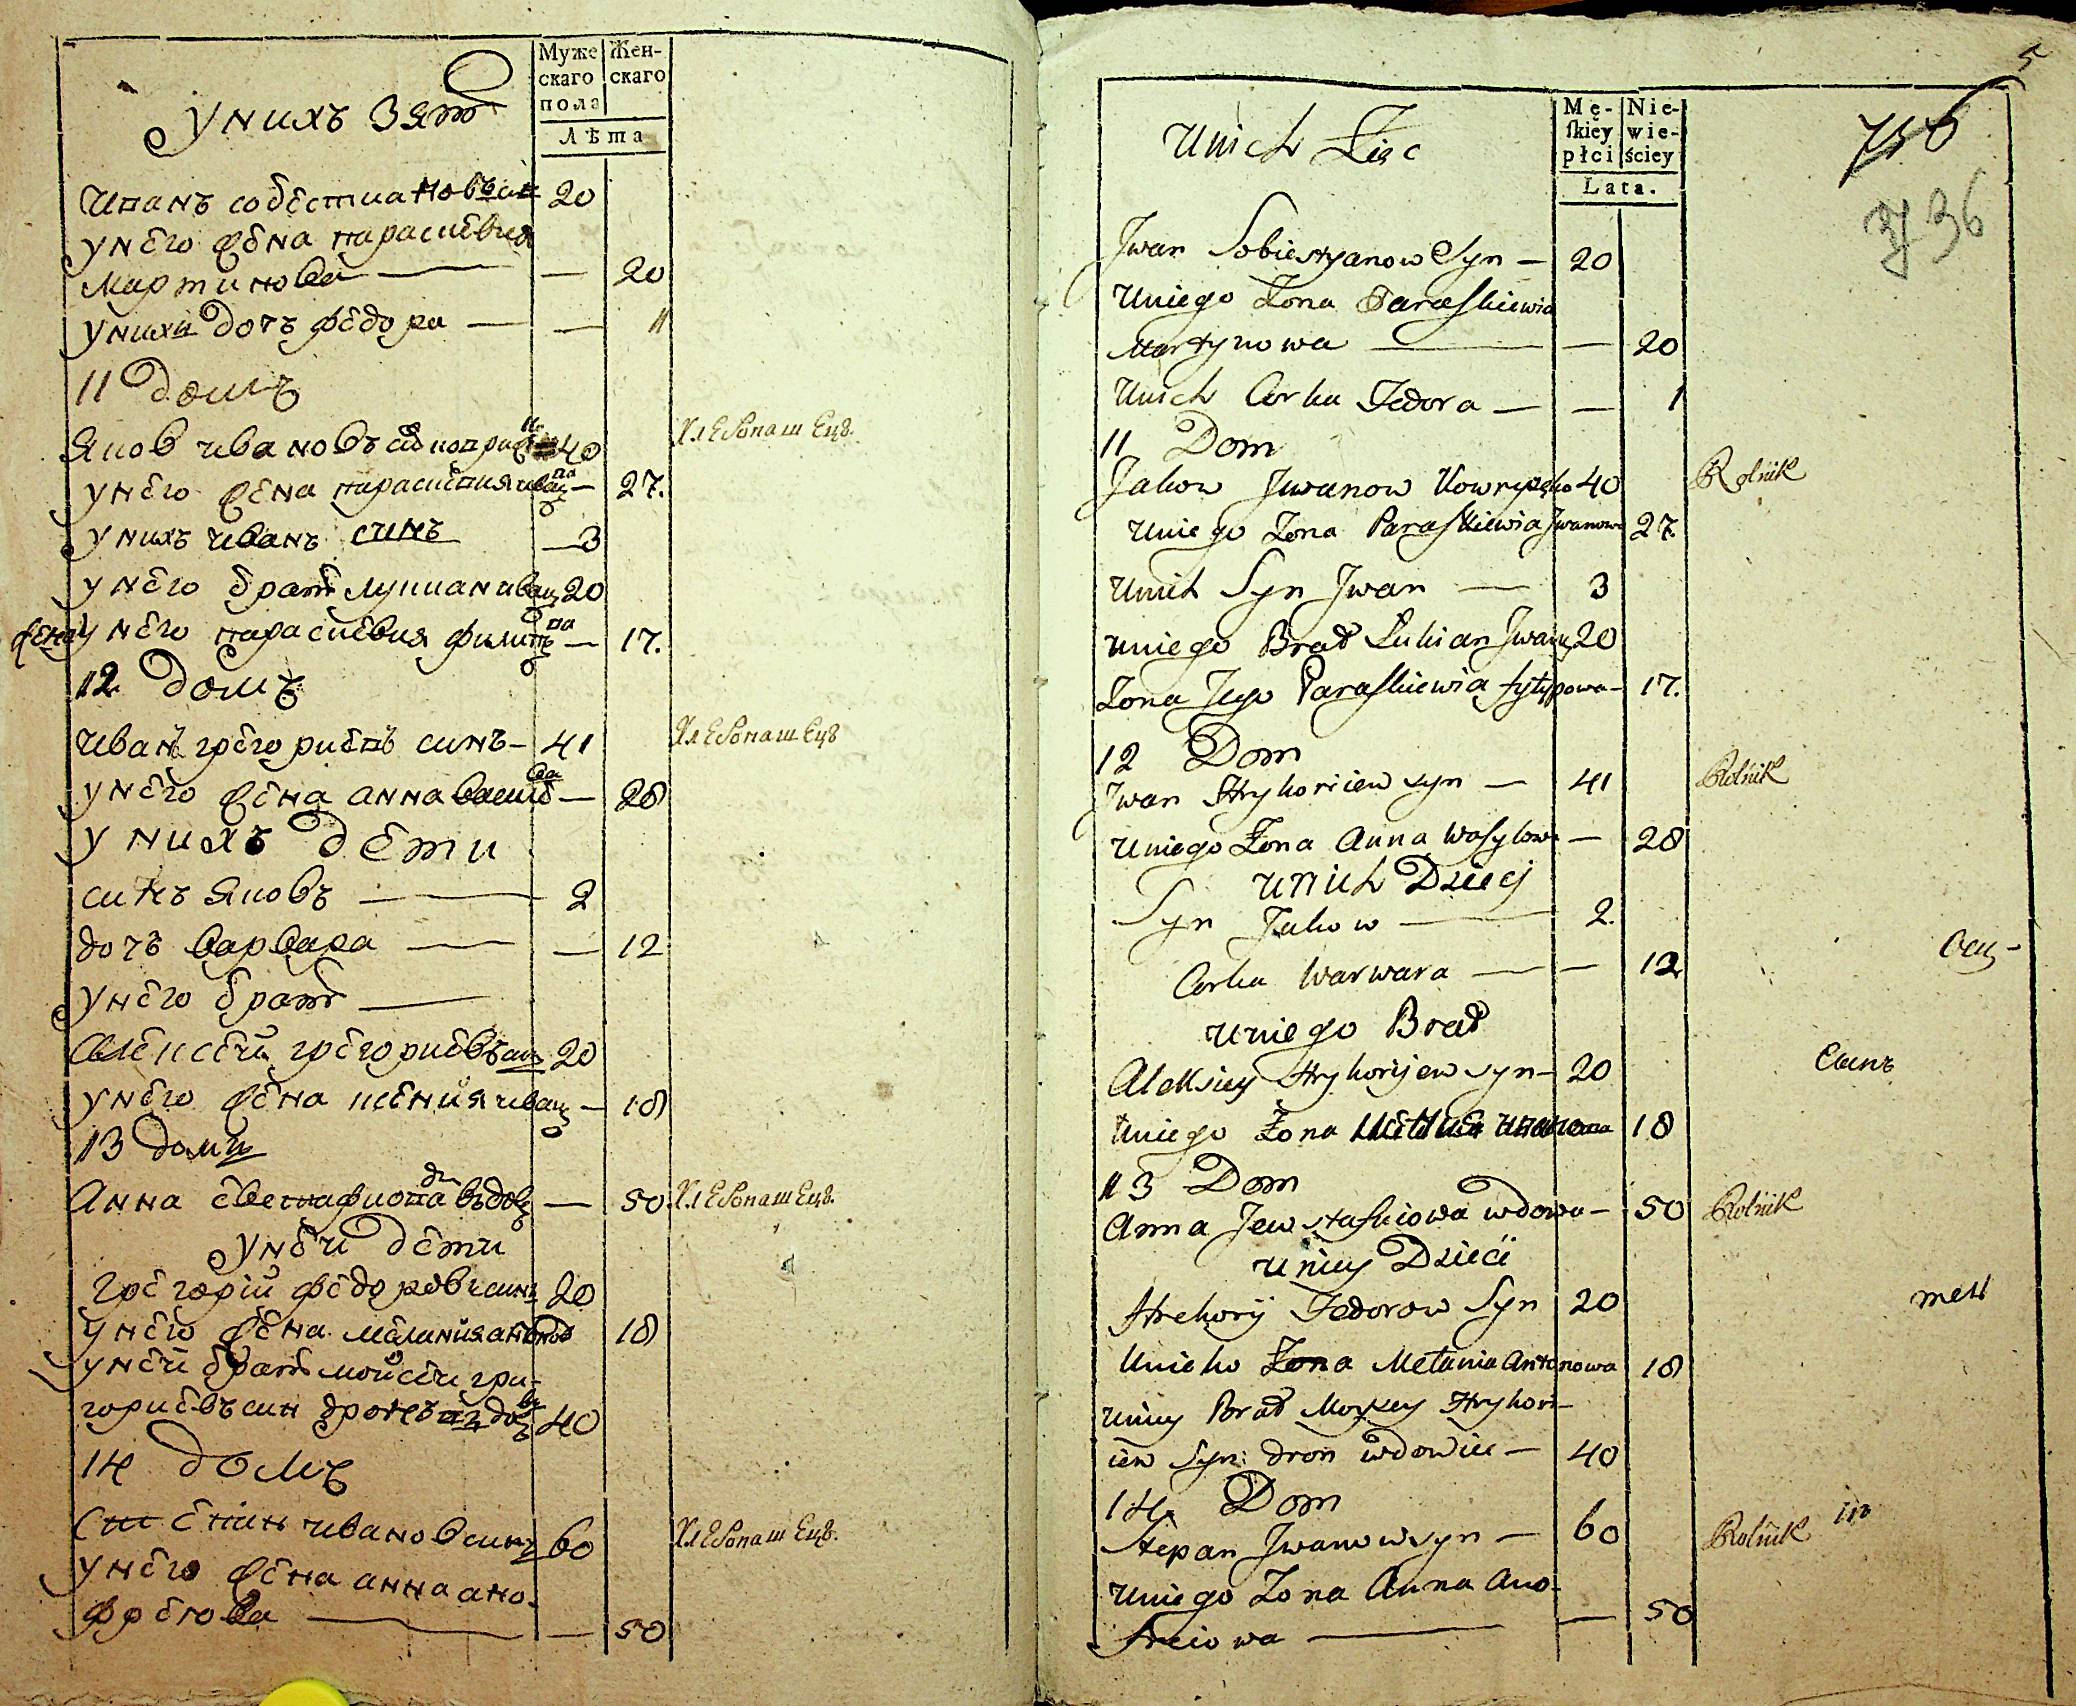 Муже
скаго
пола
Жен-
скаго
Лѣта
у нихъ Зят
Иванъ собестиановъ син 20
у него жена параскевия
Мартинова — — 20
у нихъ дочъ федора — — 1
11 домъ
Яков ивановъ 40 Хлебопашецъ.
у него жена параскевия ива на — 27.
у нихъ иванъ синъ — 3
у него брат лукиан иван 20
жена у него параскевия филип па — 17.
12 домъ
иван грегориевъ синъ — 41 Хлебопашецъ
у него жена анна васил ева — 28
у нихъ дети
синъ Яковъ — 2
дочъ варвара — — 12
у него брат —
Алексей грегориевъ син 20
у него жена ксения иван — 18
13 домъ
Анна евстафиова вдов — 50 Хлебопашецъ.
у ней дети
Грегорий федоровъ синъ 20
у него жена мелания антонов 18
у ней брат мойсей гри-
гориевъ син 40
14 домъ
Степан иванов син 60 Хлебопашецъ.
у него жена анна ано-
фреюва — — 50
5
756
36
Mę-
skiey
płci
Nie-
wie-
ściey
Lata.
U nich Zięc
Jwan Sobiestyanow Syn — 20
U niego Żona Paraskiewia
Martynowa — — 20
U nich Corka Fedora — — 1
11 Dom
Jakow Jwanow 40 Rolnik
U niego Żona Paraskiewia Jwanowa 27.
U nich Syn Jwan — 3
U niego Brat Łukian Jwan 20
Żona Jego Paraskiewia fylypowa — 17.
12 Dom
Jwan Hryhoriiew syn — 41 Rolnik
U niego Żona Anna Wasylowa — 28
U nich Dzieci
Syn Jakow — 2.
Corka Warwara — — 12
U niego Brat
Aleksiey Hryhorijew syn — 20 Синъ
U niego Żona 18
13 Dom
Anna Jewstafiowa wdowa — 50 Rolnik
U niey Dzieci
Hrehory Fedorow Syn 20
U nieho Żona Melania Antonowa 18
U niey Brat Moysey Hryhori-
iew Syn: dron wdowiec — 40
14 Dom
Stepan Jwanow syn — 60 Rolnik
U niego Żona Anna Ano-
freiowa — — 50